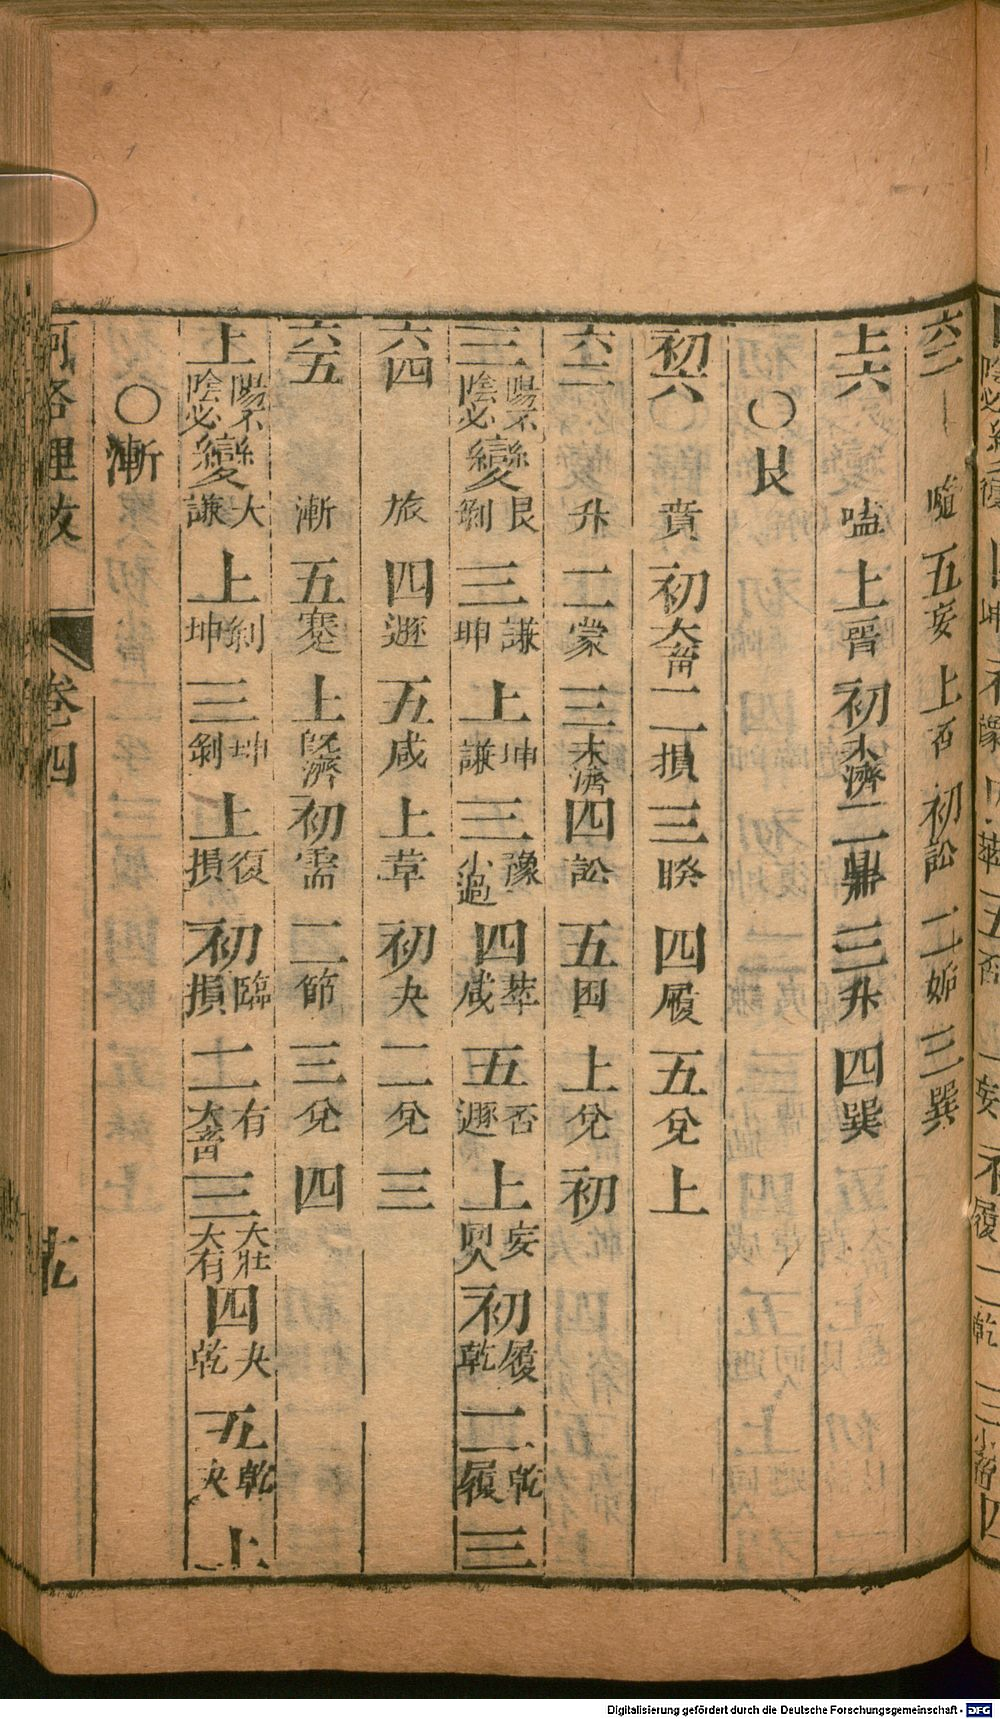 六二 噬 五妄 上否 初訟 二姤 三巽
上六 嗑 上晉 初未濟 二鼎 三升 四巽
〇艮
初六 賁 初大畜 二損 三睽 四履 五兌 上
六二 升 二蒙 三未濟 四訟 五困 上兌 初
三陽不陰必變艮剝 三謙坤 上坤謙 三豫小過 四萃咸 五否遯 上妄同人 初履乾 二乾履 三
六四 旅 四遯 五咸 上革 初夬 二兌 三
六五 漸 五蹇 上既濟 初需 二節 三兌 四
上陽不陰必變大謙 上剝坤 三坤剝 上復損 初臨損 二有大畜 三大壯大有 四夬乾 五乾夬 上
〇漸
河洛理數 卷四
Digitalisierung gefördert durch die Deutsche Forschungsgemeinschaft - DFG